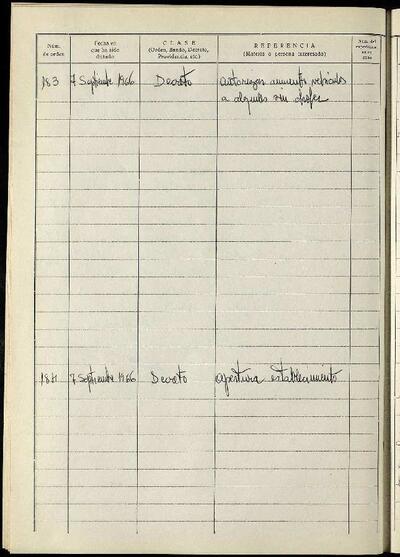 Núm.
de orden
Fecha en
que ha sido
dictado
CLASE
(Orden, Bando, Decreto,
Providencia, etc.)
REFERENCIA
(Materia o persona interesada)
Núm. del
183 7 Septiembre 1966 Decreto autorizar aumento vehículos
a alquiler sin chofer
184 7 Septiembre 1966 Decreto apertura establecimiento